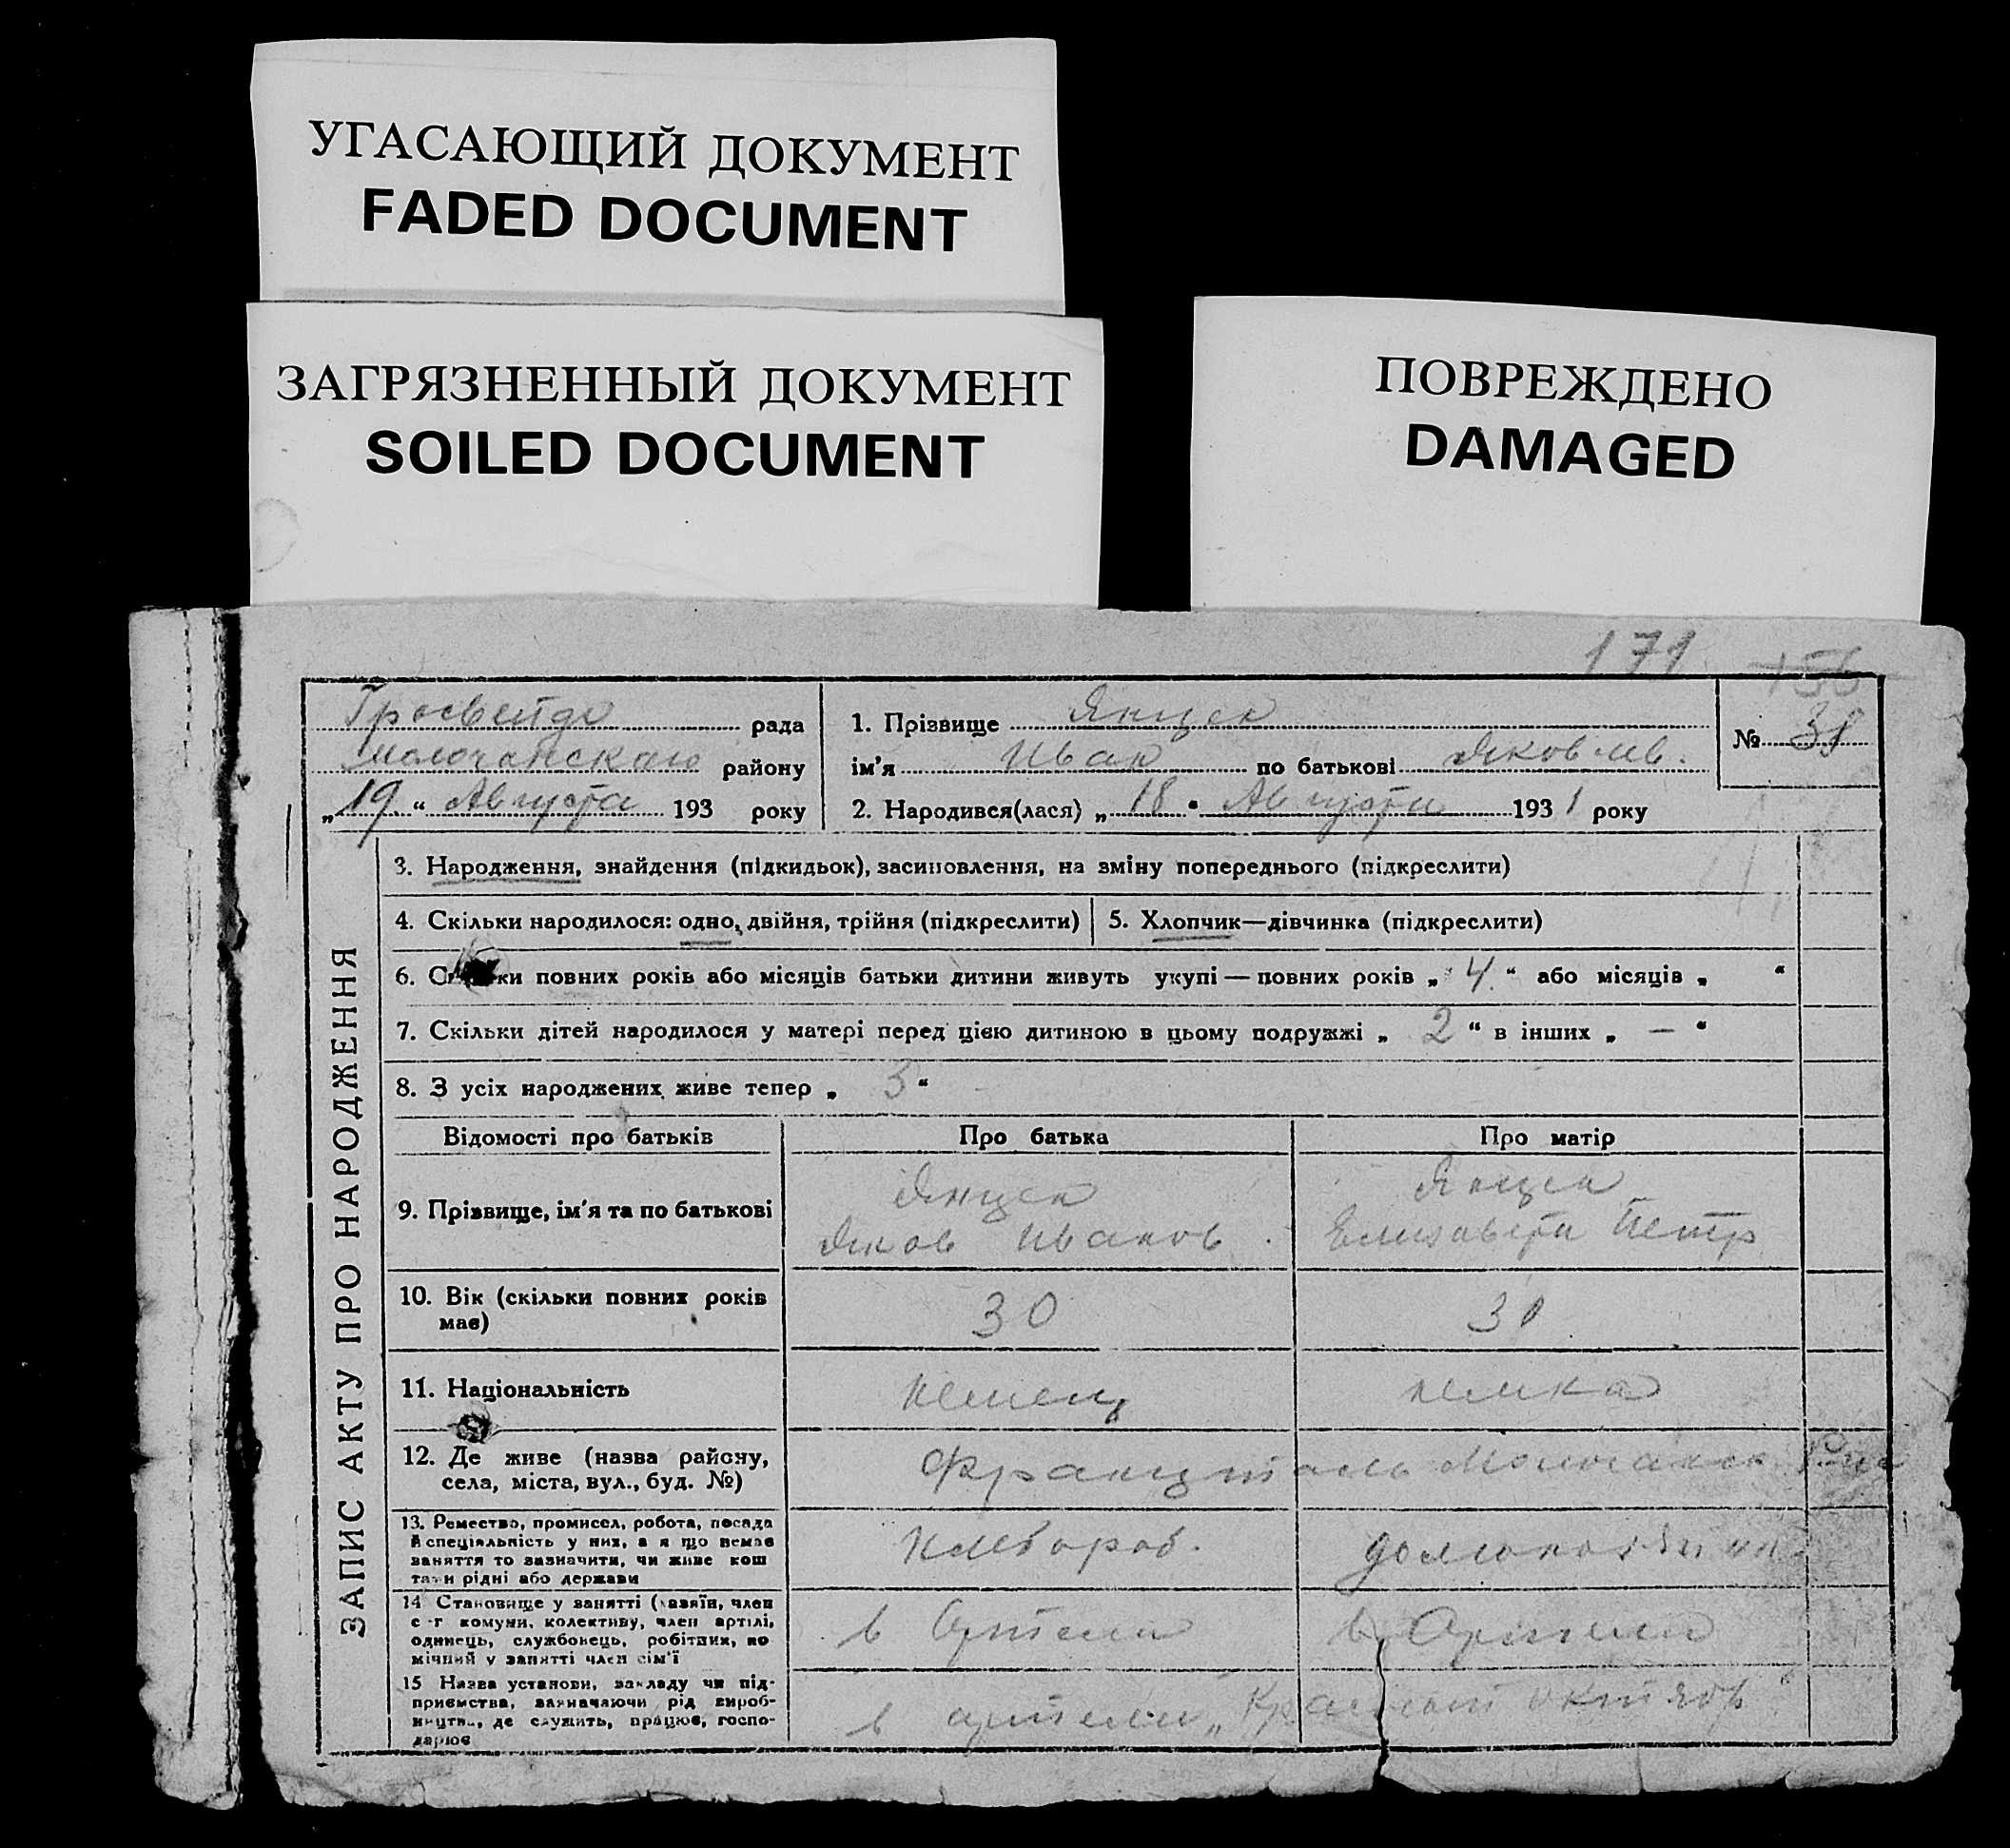 УГАСАЮЩИЙ ДОКУМЕНТ
FADED DOCUMENT
ЗАГРЯЗНЕННЫЙ ДОКУМЕНТ
SOILED DOCUMENT
ПОВРЕЖДЕНО
DAMAGED
171 156
Гросвейде рада
Молочанскаго району
„19“ Августа 193 року
1. Прізвище Янцен
ім'я Иван по батькові Яковлев.
2. Народився(лася) „18“ Августа 1931 року
№ 31
ЗАПИС АКТУ ПРО НАРОДЖЕННЯ
3. Народження, знайдення (підкидьок), засиновлення, на зміну попереднього (підкреслити)
4. Скільки народилося: одно, двійня, трійня (підкреслити)
5. Хлопчик—дівчинка (підкреслити)
6. ки повних років або місяців батьки дитини живуть укупі — повних років „4“ або місяців „ “
7. Скільки дітей народилося у матері перед цією дитиною в цьому подружжі „2“ в інших „—“
8. З усіх народжених живе тепер „3“
Відомості про батьків Про батька Про матір
9. Прізвище, ім'я та по батькові
Янцен
Яков Иванов.
Янцен
Елизавета Петр
10. Вік (скільки повних років
має)
30
31
11. Національність
немец
немка
12. Де живе (назва району,
села, міста, вул., буд. №)
Францталь Молочанск
13. Ремество, промисел, робота, посада
й спеціяльність у них, а я що немає
заняття то зазначити, чи живе кош
тами рідні або держави
хлебороб.
домохозяйка
14 Становище у занятті (хазяїн, член
с-г комуни, колективу, член артілі,
одинець, службовець, робітник, по
мічний у занятті член сім'ї
в Артели
в Артели
15 Назва установи, закладу чи під-
приємства, зазначаючи рід вироб-
ництва, де служить, працює, госпо-
дарює
в артели „Красный Октябрь“